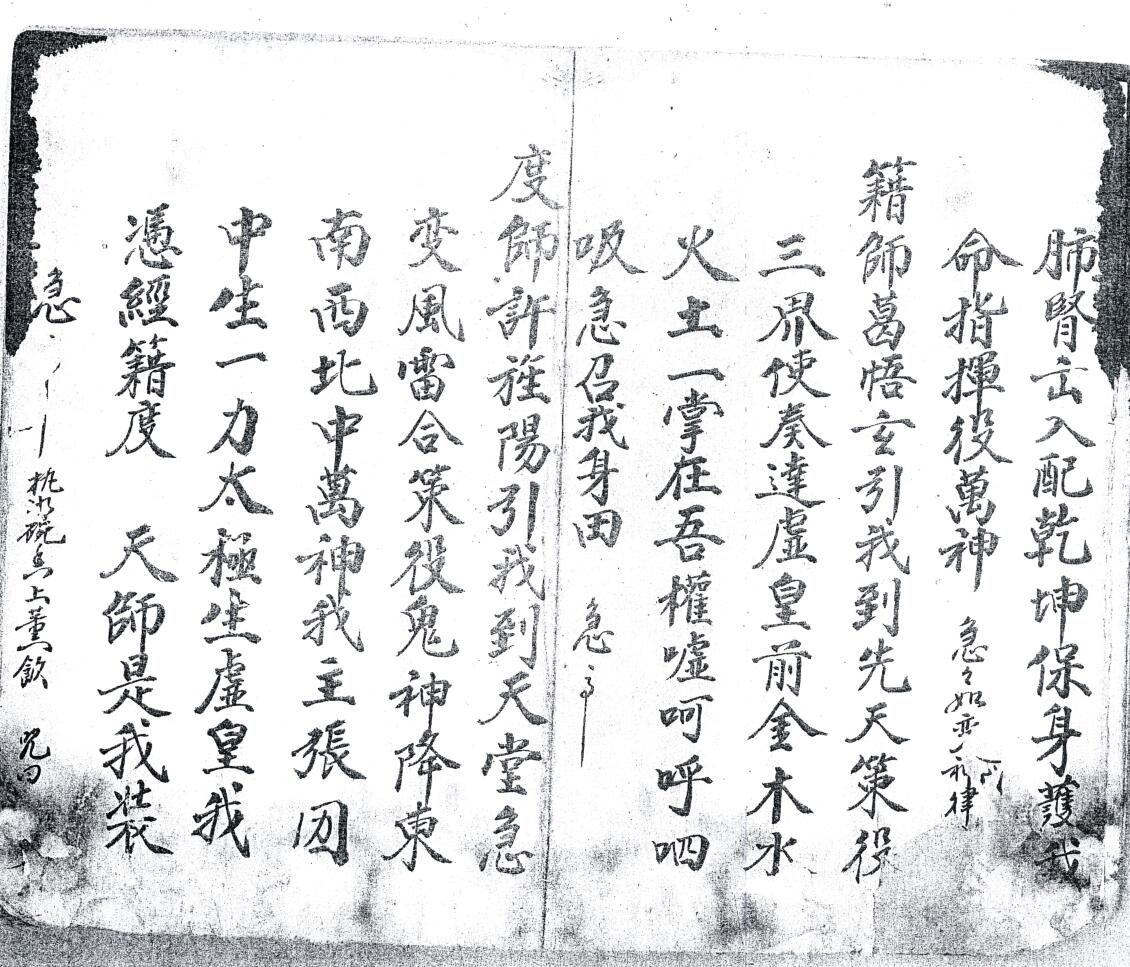 肺腎玄入配乾坤保身護我
命指揮役萬神 急々如 律
籍師葛悟玄引我到先天策役
三界使奏達虛皇前金木水
火土一掌在吾權噓呵呼呬
吸急召我身田 急
度師許旌陽引我到天堂急
变風雷合策役鬼神降東
南西北中萬神我主張囡
中生一力太極生虛皇我
憑經籍度 天師是我裝
急 香上薰飲 咒曰